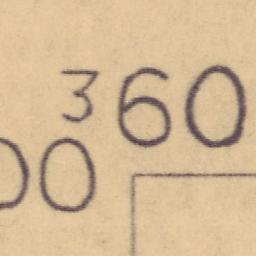 360
00